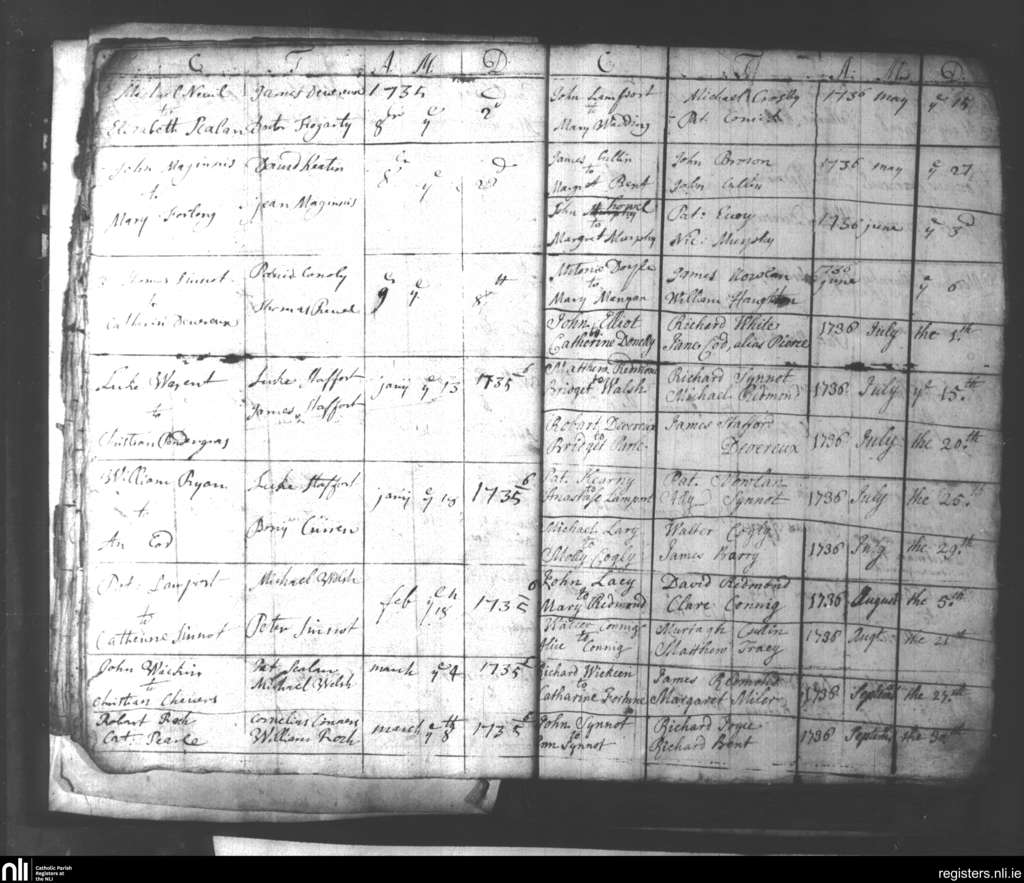 C T A M D
Michael Nevil James Devereux 1735
to
Elizabeth Pealan Fogarty 8br ye 2d
John Maginnis David Keatin 8r ye 2d
to
Mary Forlong Jean Maginnis
Thomas Sinnot Patrick Conoly 9r ye 8th
to
Catherin Devereux Thomas
Luke Luke Staffort janij ye 13 1735/6
to James Staffort
Christian Pendergras
William Ryan Luke Staffort janij ye 18 1735/6
to
An Cod Curren
Pat: Lamport Michael Welsh feb ye 18th 1735/6
to
Catherine Sinnot Peter Sinnot
John Wickin Pat Scalan march ye 4 1735/6
to Michael Welsh
Christian Chievers
Robart Roch Cornelius march ye 8th 1735/6
Cat: Pearle William Roch
C T A M D
John Lamport Michael Crosby 1736 may ye 15
to
Mary Wadding Pat. Comick
James Cullin John Broson 1736 may ye 27
to
Margret Bent John Cullin
John howel Pat: Euoy 1736 june ye 3d
to
Margret Murphy Nic: Murphy
Doyle James Nowlan 1736 june ye 6
to
Mary Mangan William Haughton
John Elliot Richard White 1736 July the 1th
to
Catherine Donelly Jane Cod, alias Pierce
Matthew Redmond Richard Synnot 1736 July ye 15th
to
Bridget Walsh Michael Redmond
Robart Devereux James Stafford
to
Bridget Devereux 1736 July the 20th
Pat. Kearny Pat. Nowlan
Anastase Lamport Synnot 1736 July the 26th
Michael Lary Walter Cogly
to
Molly Cogly James Barry 1736 July the 29th
John Lacy David Redmond
to
Mary Redmond Clare Connig 1736 August the 5th
Walter Connig Murtagh Culin 1736 Augt the 21th
to
Alie Connig Matthew Tracy
Richard Wickeen James Redmond
to
Catharine Fortune Margaret Miler 1736 Septem the 27th
John Synnot Richard Joyce
to
Synnot Richard Bent 1736 Septem the 30th
nli
Catholic Parish
Registers at
the NLI
registers.nli.ie